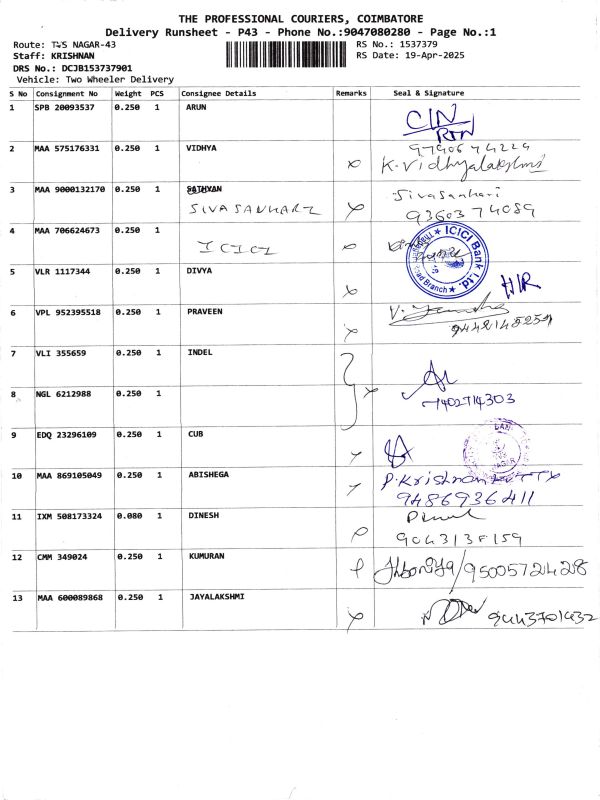 THE PROFESSIONAL COURIERS, COIMBATORE
Delivery Runsheet - P43 - Phone No.:9047080280 - Page No.:1
Route: TWS NAGAR-43
RS No.: 1537379
Staff: KRISHNAN
RS Date: 19-Apr-2025
DRS No.: DCJB153737901
Vehicle: Two Wheeler Delivery
S No Consignment No Weight PCS Consignee Details Remarks Seal & Signature
1 SPB 20093537 0.250 1 ARUN
CIN
RTN
2 MAA 575176331 0.250 1 VIDHYA
K.Vidhyalakshmi
3 MAA 9000132170 0.250 1 SATHYAN Sivasankari
SIVASANKARI 9360374089
4 MAA 706624673 0.250 1
ICICI ICICI Bank Ltd.
Branch
5 VLR 1117344 0.250 1 DIVYA
H/R
6 VPL 952395518 0.250 1 PRAVEEN
9442145259
7 VLI 355659 0.250 1 INDEL
8 NGL 6212988 0.250 1
7402714303
9 EDQ 23296109 0.250 1 CUB
10 MAA 869105049 0.250 1 ABISHEGA P.Krishnan
9486936411
11 IXM 508173324 0.080 1 DINESH
9043138159
12 CMM 349024 0.250 1 KUMURAN 9500572428
13 MAA 600089868 0.250 1 JAYALAKSHMI
9443701432